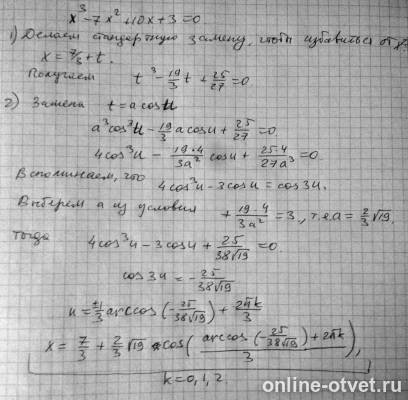 x³-7x²+10x+3=0
1) Делаем стандартную замену, чтобы избавиться от x².
x = 7/3 + t.
Получаем t³ - 19/3 t + 25/27 = 0
2) Замена t = a cos u
a³cos³u - 19/3 a cos u + 25/27 = 0.
4cos³u - 19·4/3a² cos u + 25·4/27a³ = 0.
Вспоминаем, что 4cos³u - 3cos u = cos 3u.
Выберем a из условия + 19·4/3a² = 3, т.е. a = 2/3 √19.
тогда 4cos³u - 3cos u + 25/38√19 = 0.
cos 3u = - 25/38√19
u = ± 1/3 arccos(- 25/38√19) + 2πk/3
x = 7/3 + 2/3 √19 cos( arccos(- 25/38√19) + 2πk / 3 ),
k = 0, 1, 2.
online-otvet.ru